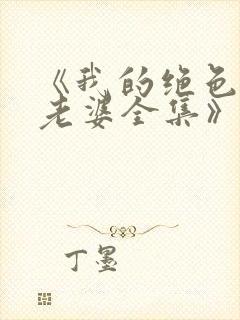 《我的绝色
老婆全集》
丁墨